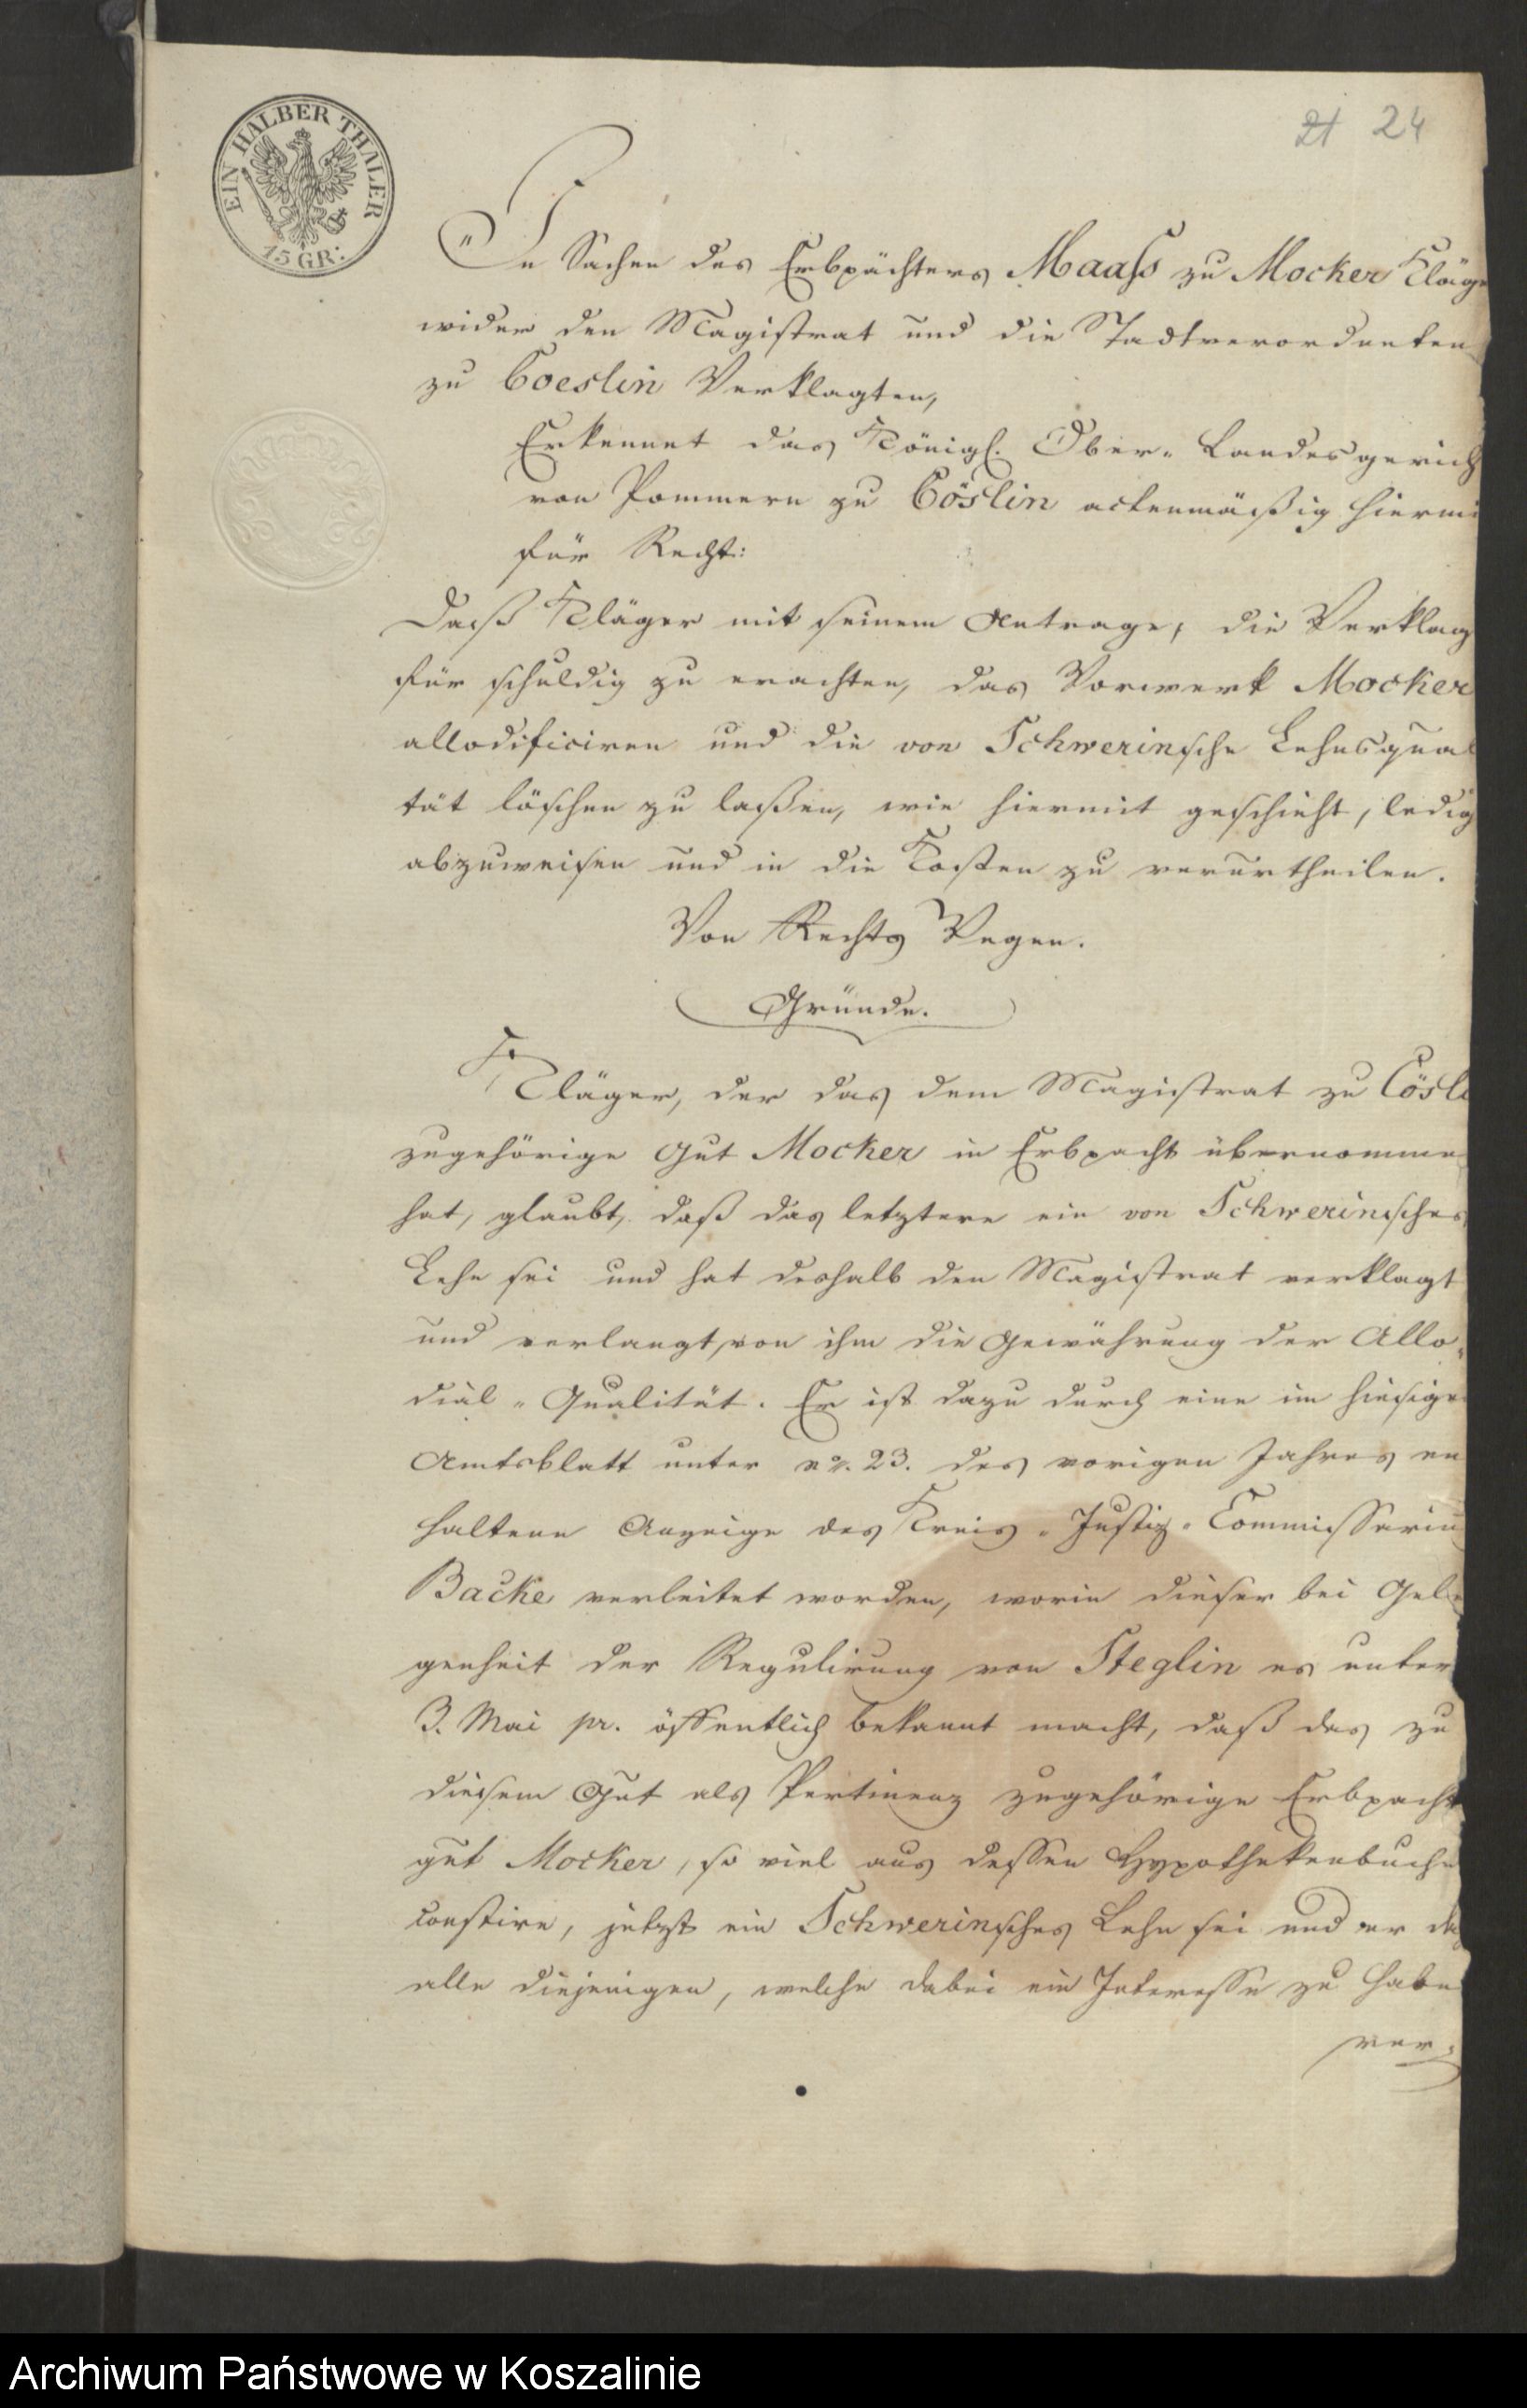 EIN HALBER THALER
15 GR:
21 24
In Sachen des Erbpächters Maass zu Mocker Kläge
wider den Magistrat und die Stadtverordneten
zu Coeslin Verklagten,
Erkennet das Königl. Ober-Landesgerich
von Pommern zu Cöslin actenmäßig hiermi
für Recht:
Daß Kläger mit seinem Antrage, die Verklag
für schuldig zu erachten, das Vorwerk Mocker
allodificiren und die von Schwerinsche Lehnsqual
tät löschen zu laßen, wie hiermit geschieht, ledig
abzuweisen und in die Kosten zu verurtheilen.
Von Rechts Wegen.
Gründe.
Kläger, der das dem Magistrat zu Cösl
zugehörige Gut Mocker in Erbpacht übernomme
hat, glaubt, daß das letztere ein von Schwerinsches
Lehn sei und hat deshalb den Magistrat verklagt
und verlangt, von ihm die Gewährung der Allo-
dial-Qualität. Er ist dazu durch eine im hiesige
Amtsblatt unter nr. 23. des vorigen Jahres en
haltene Anzeige des Kreis-Justiz-Commissariu
Backe verleitet worden, worin dieser bei Gele
genheit der Regulirung von Steglin es unter
3. Mai pr. öffentlich bekannt macht, daß das zu
diesem Gut als Pertinenz zugehörige Erbpacht
gut Mocker, so viel aus dessen Hypothekenbuche
constire, jetzt ein Schwerinsches Lehn sei und er da
alle diejenigen, welche dabei ein Interesse zu habe
ver-
Archiwum Państwowe w Koszalinie